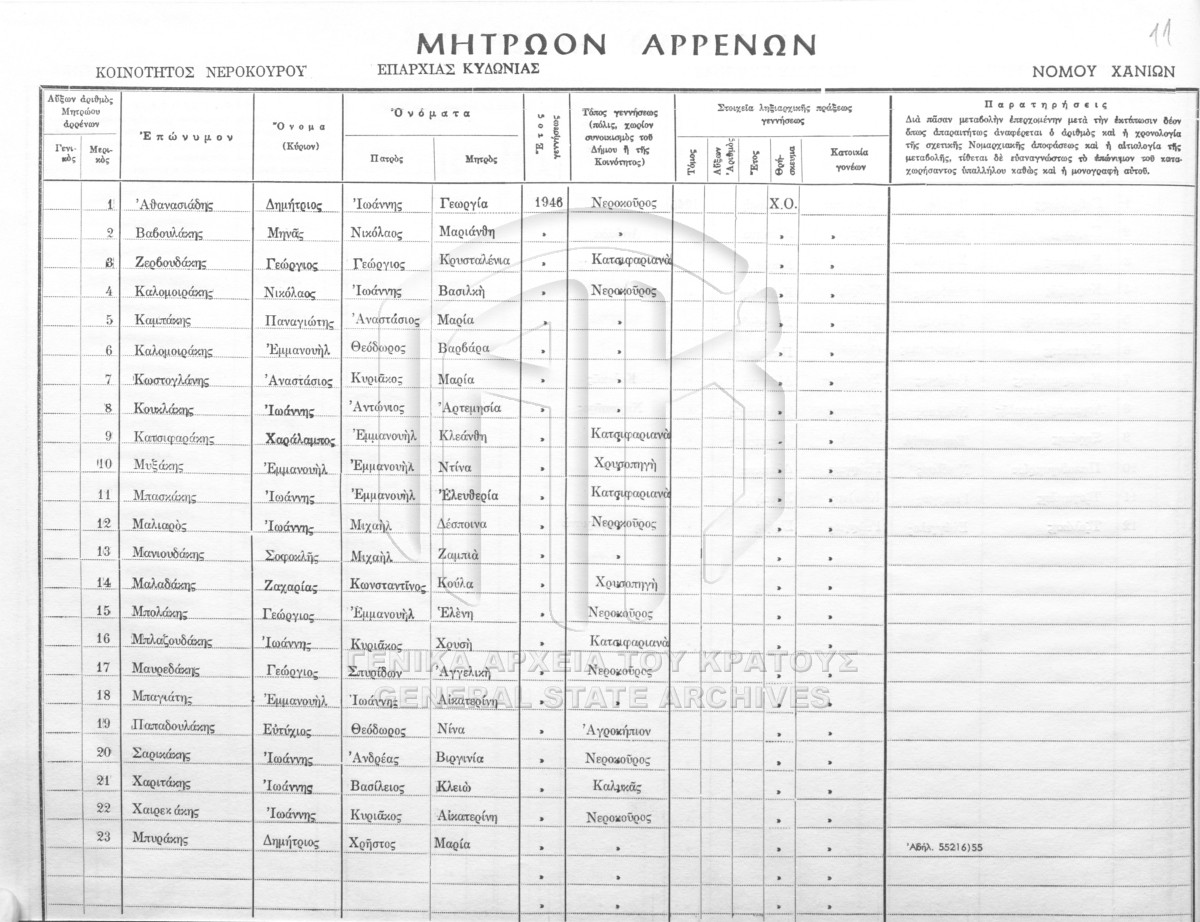 11
ΜΗΤΡΩΟΝ ΑΡΡΕΝΩΝ
ΚΟΙΝΟΤΗΤΟΣ ΝΕΡΟΚΟΥΡΟΥ ΕΠΑΡΧΙΑΣ ΚΥΔΩΝΙΑΣ ΝΟΜΟΥ ΧΑΝΙΩΝ
Αὔξων ἀριθμὸς Μητρώου ἀρρένων
Γενικὸς Μερικὸς
Ἐπώνυμον
Ὄνομα (Κύριον)
Ὀνόματα
Πατρὸς Μητρὸς
Ἔτος γεννήσεως
Τόπος γεννήσεως (πόλις, χωρίον συνοικισμὸς τοῦ Δήμου ἢ τῆς Κοινότητος)
Στοιχεῖα ληξιαρχικῆς πράξεως γεννήσεως
Τόμος Αὔξων Ἀριθμὸς Ἔτος Θρήσκευμα Κατοικία γονέων
Παρατηρήσεις
Διὰ πᾶσαν μεταβολὴν ἐπερχομένην μετὰ τὴν ἐκτύπωσιν δέον
ὅπως ἀπαραιτήτως ἀναφέρεται ὁ ἀριθμὸς καὶ ἡ χρονολογία
τῆς σχετικῆς Νομαρχιακῆς ἀποφάσεως καὶ ἡ αἰτιολογία τῆς
μεταβολῆς, τίθεται δὲ εὐαναγνώστως τὸ ἐπώνυμον τοῦ κατα-
χωρήσαντος ὑπαλλήλου καθὼς καὶ ἡ μονογραφὴ αὐτοῦ.
1 Ἀθανασιάδης Δημήτριος Ἰωάννης Γεωργία 1946 Νεροκοῦρος Χ.Ο.
2 Βαβουλάκης Μηνᾶς Νικόλαος Μαριάνθη » » » »
3 Ζερβουδάκης Γεώργιος Γεώργιος Κρυσταλένια » Κατσιφαριανὰ » »
4 Καλομοιράκης Νικόλαος Ἰωάννης Βασιλκὴ » Νεροκοῦρος » »
5 Καμπάκης Παναγιώτης Ἀναστάσιος Μαρία » » » »
6 Καλομοιράκης Ἐμμανουὴλ Θεόδωρος Βαρβάρα » » » »
7 Κωστογλάνης Ἀναστάσιος Κυριᾶκος Μαρία » » » »
8 Κουκλάκης Ἰωάννης Ἀντώνιος Ἀρτεμησία » » » »
9 Κατσιφαράκης Χαράλαμπος Ἐμμανουὴλ Κλεάνθη » Κατσιφαριανὰ » »
10 Μυξάκης Ἐμμανουὴλ Ἐμμανουὴλ Ντίνα » Χρυσοπηγὴ » »
11 Μπασκάκης Ἰωάννης Ἐμμανουὴλ Ἐλευθερία » Κατσιφαριανὰ » »
12 Μαλιαρὸς Ἰωάννης Μιχαὴλ Δέσποινα » Νεροκοῦρος » »
13 Μανιουδάκης Σοφοκλῆς Μιχαὴλ Ζαμπιὰ » » » »
14 Μαλαδάκης Ζαχαρίας Κωνσταντῖνος Κούλα » Χρυσοπηγὴ » »
15 Μπολάκης Γεώργιος Ἐμμανουὴλ Ἑλένη » Νεροκοῦρος » »
16 Μπλαζουδάκης Ἰωάννης Κυριᾶκος Χρυσὴ » Κατσιφαριανὰ » »
17 Μαυρεδάκης Γεώργιος Σπυρίδων Ἀγγελικὴ » Νεροκοῦρος » »
18 Μπαγιάτης Ἐμμανουὴλ Ἰωάννης Αἰκατερίνη » » » »
19 Παπαδουλάκης Εὐτύχιος Θεόδωρος Νίνα » Ἀγροκήπιον » »
20 Σαρικάκης Ἰωάννης Ἀνδρέας Βιργινία » Νεροκοῦρος » »
21 Χαριτάκης Ἰωάννης Βασίλειος Κλειὼ » Καλυκᾶς » »
22 Χαιρεκάκης Ἰωάννης Κυριᾶκος Αἰκατερίνη » Νεροκοῦρος » »
23 Μπυράκης Δημήτριος Χρῆστος Μαρία » » » » Ἀδήλ. 55216)55
» » » »
» » » »
ΓΕΝΙΚΑ ΑΡΧΕΙΑ ΤΟΥ ΚΡΑΤΟΥΣ
GENERAL STATE ARCHIVES